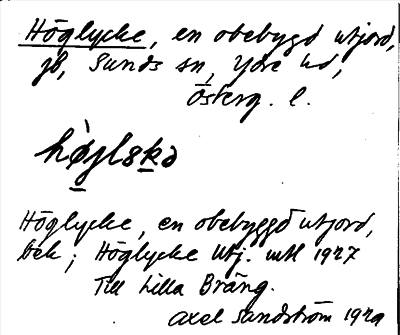 Höglycke, en obebygd utjord,
jb, Sunds sn, Ydre hd,
Österg. l.
Höglycke, en obebyggd utjord,
bek; Höglycke Utj. mtl 1927
Till Lilla Bräng.
Axel Sandström 1929